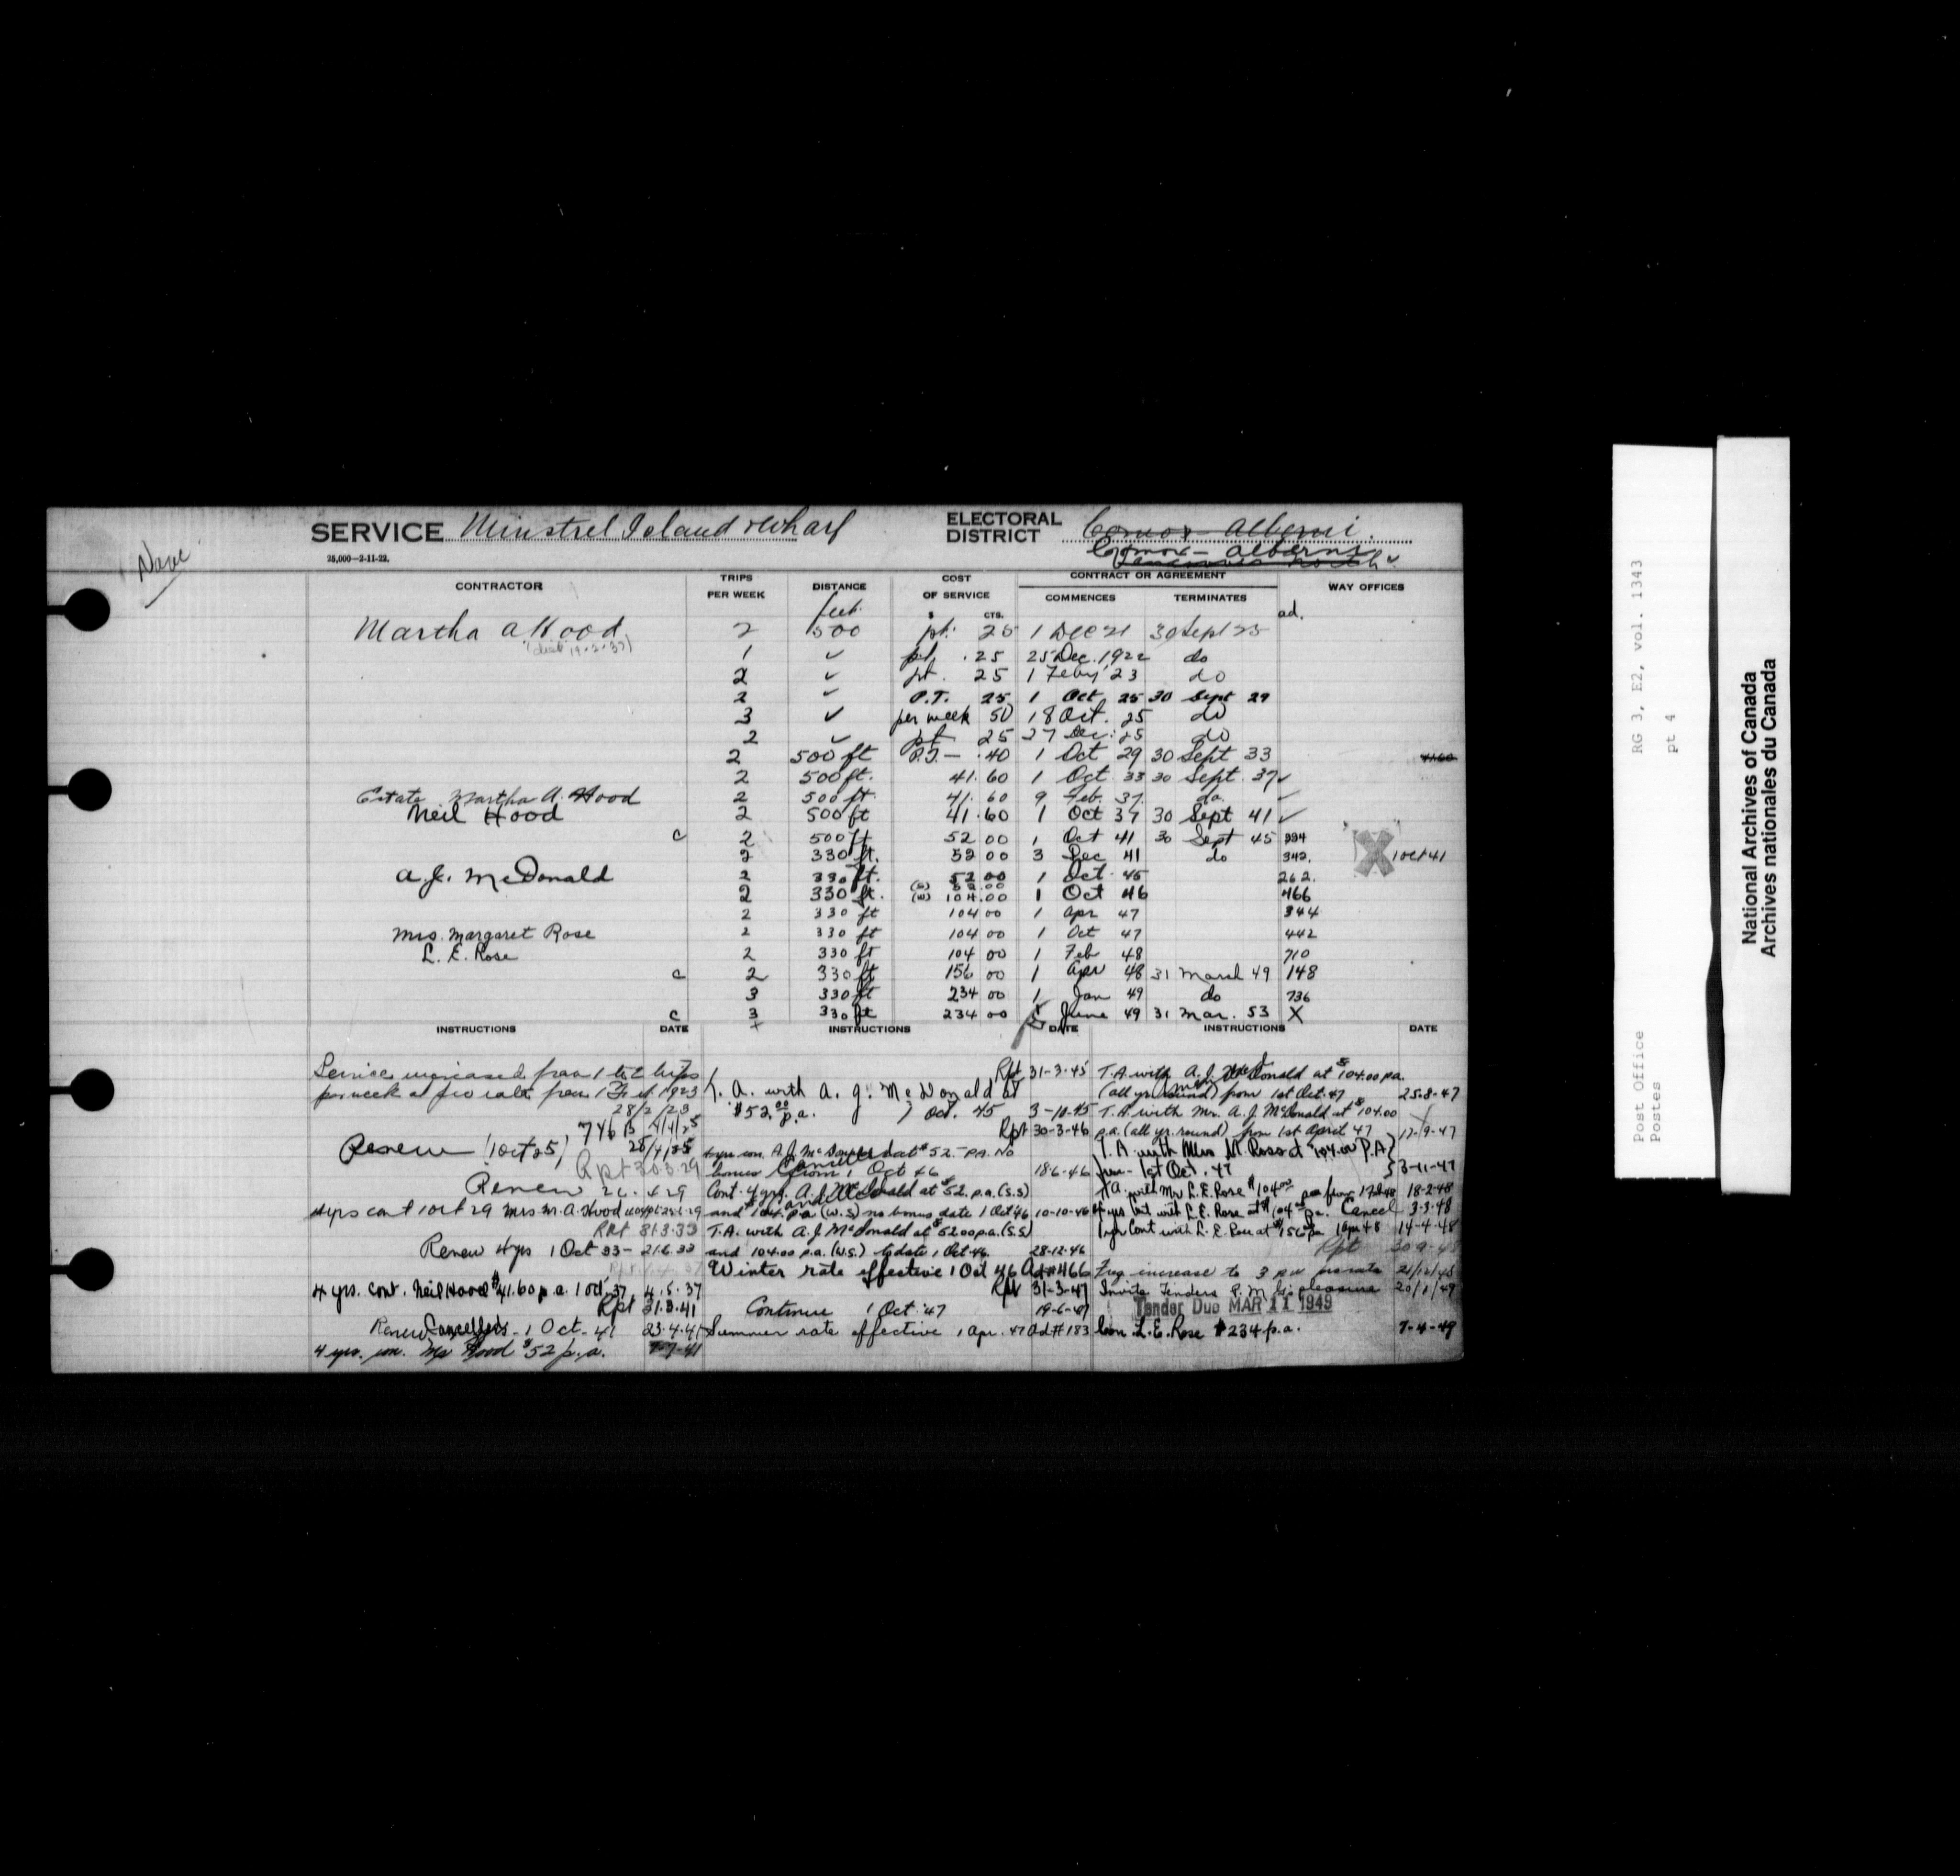 None
SERVICE Minstrel Island & Wharf
25,000—2-11-22.
ELECTORAL DISTRICT Comox - Alberni.
Comox - Alberni
Vancouver North
CONTRACTOR TRIPS PER WEEK DISTANCE COST OF SERVICE CONTRACT OR AGREEMENT WAY OFFICES
$ CTS. COMMENCES TERMINATES
feet ad.
Martha A Hood 2 500 pt. 25 1 Dec 21 30 Sept 25
(died 19.2.37)
1 ✓ pt. .25 25 Dec. 1922 do
2 ✓ pt. 25 1 Feby '23 do
2 ✓ P.T. 25 1 Oct 25 30 Sept 29
3 ✓ per week 50 18 Oct. 25 do
2 ✓ pt 25 27 Dec: 25 do
2 500 ft P.T. — .40 1 Oct 29 30 Sept 33 41.60
2 500 ft. 41.60 1 Oct. 33 30 Sept. 37 ✓
Estate Martha A. Hood 2 500 ft. 41.60 9 Feb. 37. do. ✓
Neil Hood 2 500 ft 41.60 1 Oct 37 30 Sept 41 ✓
c 2 500 ft 52 00 1 Oct 41 30 Sept 45 394
2 330 ft. 52 00 3 Dec 41 do 342. X 1 Oct 41
A. J. McDonald 2 330 ft. 52 00 1 Oct. 45 262.
2 330 ft. (S) 52.00 (W) 104.00 1 Oct 46 466
2 330 ft 104 00 1 Apr 47 344
Mrs. Margaret Rose 2 330 ft 104 00 1 Oct 47 442
L. E. Rose 2 330 ft 104 00 1 Feb 48 710
c 2 330 ft 156 00 1 Apr 48 31 March 49 148
3 330 ft 234 00 1 Jan 49 do 736
c 3 330 ft 234 00 1 June 49 31 Mar. 53 X
INSTRUCTIONS DATE INSTRUCTIONS DATE INSTRUCTIONS DATE
Service increased from 1 to 2 trips
per week at pro rate from 1 Feb 1923
28/2/23
746 B 4/4/25
Renew 1 Oct 25 28/4/25
Rpt 30.3.29
Renew 26.4.29
4 yrs cont 1 Oct 29 Mrs. M. A. Hood
Rpt 31.3.33
Renew 4 yrs 1 Oct 33 - 21.6.33
4 yrs. cont. Neil Hood $41.60 p.a. 1 Oct 37 4.5.37
Rpt 31.3.41
Renew Cancelled - 1 Oct - 41 23.4.41
4 yrs. con. Mr Hood $52 p.a. 7-7-41
Rpt 31-3-45
T. A. with A. J. McDonald at
$52.00 p.a. 1 Oct. 45 3-10-45
Rpt 30-3-46
4 yrs con. A. J. McDonald at $52.- pa. No
bonus from 1 Oct 46 18-6-46
Cancelled
Cont. 4 yrs. A. J. McDonald at $52. p.a. (S.S)
and $104. p.a (W.S) no bonus date 1 Oct 46 10-10-46
Cancelled
T.A. with A. J. McDonald at $52.00 p.a. (S.S)
and 104.00 p.a. (W.S.) to date 1 Oct. 46. 28-12-46
Winter rate effective 1 Oct 46 Ad#466
Rpt 31-3-47
Continue 1 Oct. '47 19-6-47
Summer rate effective 1 Apr. 47 Ad#183
T.A. with A. J. McDonald at $104.00 pa.
(all yr. round) from 1st Oct. 47 25-8-47
T.A. with Mr. A. J. McDonald at $104.00
p.a. (all yr. round) from 1st April 47 17-9-47
T. A. with Mrs M. Ross at $104.00 P.A
from 1st Oct. 47 3-11-47
T.A. with Mr L. E. Rose $104.00 pa from 18-2-48
4 yrs Cont with L. E. Rose at $104.00 pa. Cancel 3-3-48
1 yr Cont. with L. E. Rose at $156 pa 1 Apr 48 14-4-48
Rpt 30.9.48
Freq increase to 3 p.w. pro rata 21/12/48
Invite Tenders P. M. G's pleasure 20/1/49
Tender Due MAR 11 1949
Con. L. E. Rose $234 p.a. 7-4-49
Post Office
Postes
RG 3, E2, vol. 1343
pt 4
National Archives of Canada
Archives nationales du Canada